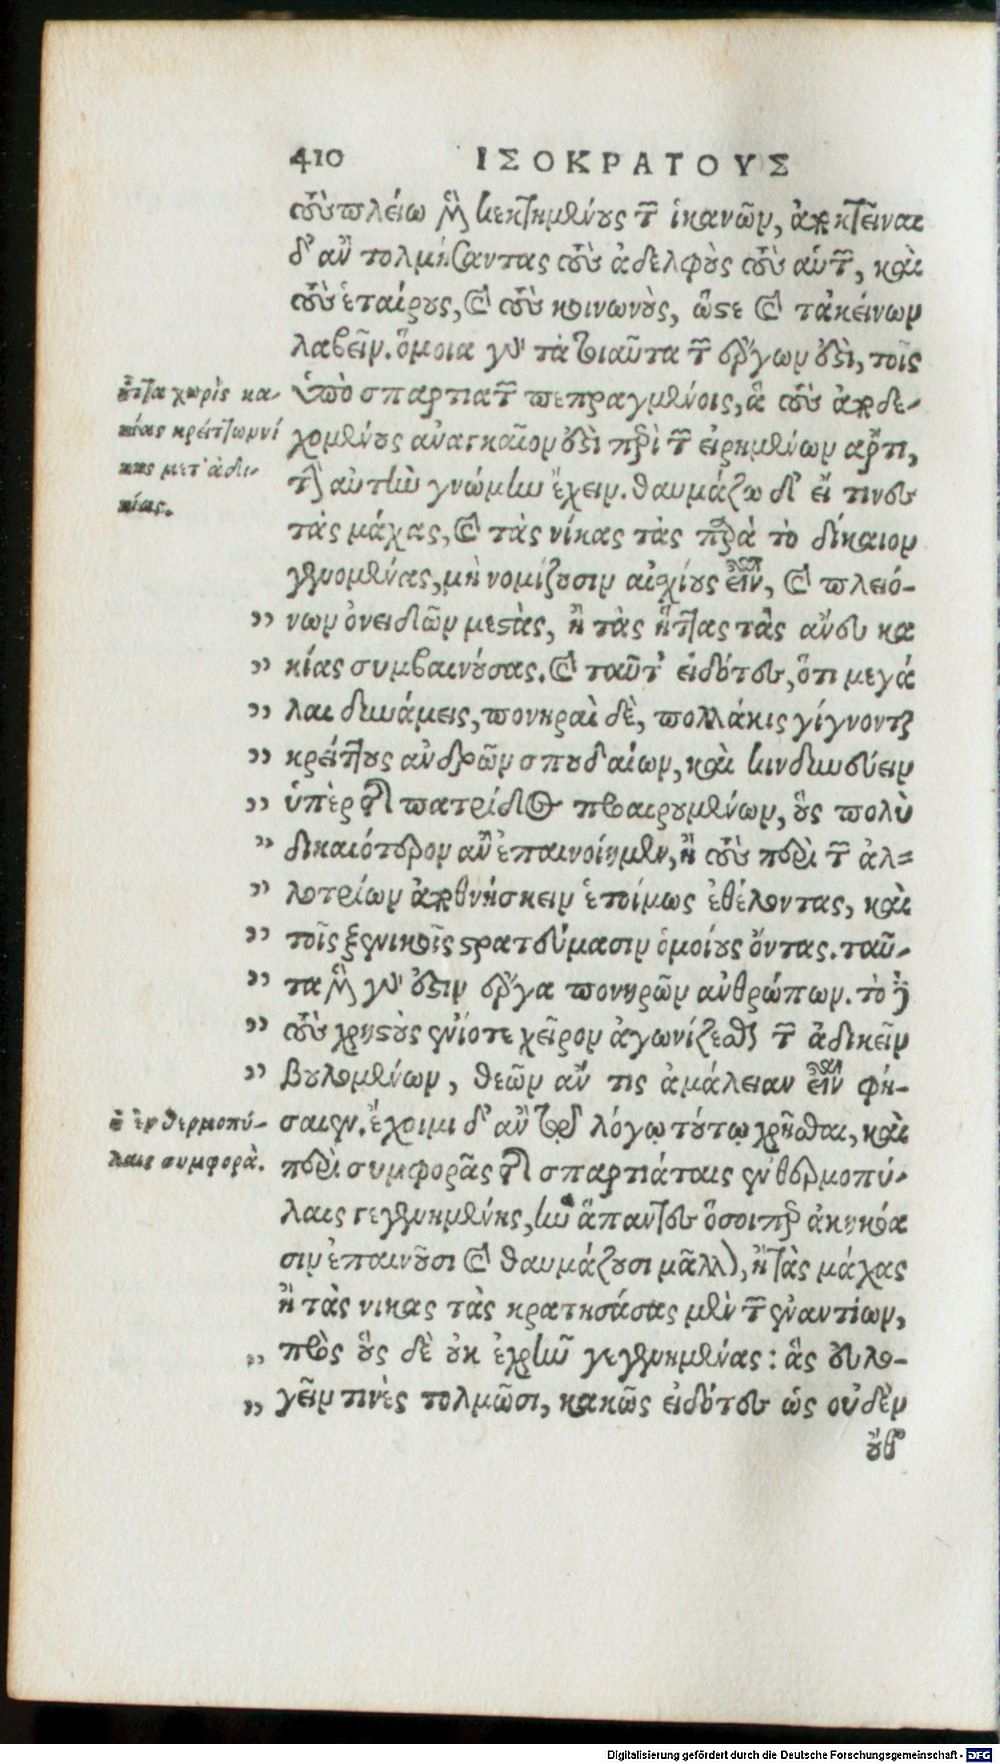 410 ΙΣΟΚΡΑΤΟΥΣ
τοὺς πλείω μὲν κεκτημένους τῶν ἱκανῶν, ἀποκτεῖναι
δ' ἂν τολμήσαντας τοὺς ἀδελφοὺς τοὺς αὑτῶν, καὶ
τοὺς ἑταίρους, καὶ τοὺς κοινωνοὺς, ὥστε καὶ τἀκείνων
λαβεῖν. ὅμοια γὰρ τὰ τοιαῦτα τῶν ἔργων ἐστὶ, τοῖς
ὑπὸ σπαρτιατῶν πεπραγμένοις, ἃ τοὺς ἀποδε-
χομένους ἀναγκαῖον ἐστὶ περὶ τῶν εἰρημένων ἄρτι,
τὴν αὐτὴν γνώμην ἔχειν. θαυμάζω δ' εἴ τινες
τὰς μάχας, καὶ τὰς νίκας τὰς παρὰ τὸ δίκαιον
γενομένας, μὴ νομίζουσιν αἰσχίους εἶναι, καὶ πλειό-
„ νων ὀνειδῶν μεστὰς, ἢ τὰς ἥττας τὰς ἄνευ κα
„ κίας συμβαινούσας. καὶ ταῦτ' εἰδότες, ὅτι μεγά
„ λαι δυνάμεις, πονηραὶ δὲ, πολλάκις γίγνονται
„ κρείττους ἀνδρῶν σπουδαίων, καὶ κινδυνεύειν
„ ὑπὲρ τῆς πατρίδος προαιρουμένων, οὓς πολὺ
„ δικαιότερον ἂν ἐπαινοίημεν, ἢ τοὺς περὶ τῶν ἀλ-
„ λοτρίων ἀποθνήσκειν ἑτοίμως ἐθέλοντας, καὶ
„ τοῖς ξενικοῖς στρατεύμασιν ὁμοίους ὄντας. ταῦ-
„ τα μὲν γὰρ ἐστιν ἔργα πονηρῶν ἀνθρώπων. τὸ δὲ
„ τοὺς χρηστοὺς ἐνίοτε χεῖρον ἀγωνίζεσθαι τῶν ἀδικεῖν
„ βουλομένων, θεῶν ἄν τις ἀμέλειαν εἶναι φή-
σαιεν. ἔχοιμι δ' ἂν τῷ λόγῳ τούτῳ χρῆσθαι, καὶ
περὶ συμφορᾶς τῆς σπαρτιάταις ἐν θερμοπύ-
λαις γεγενημένης, ἣν ἅπαντες ὅσοιπερ ἀκηκόα
σιν ἐπαινοῦσι καὶ θαυμάζουσι μᾶλλον, ἢ τὰς μάχας
ἢ τὰς νικας τὰς κρατησάσας μὲν τῶν ἐναντίων,
„ πρὸς οὓς δὲ οὐκ ἐχρῆν γεγενημένας: ἃς εὐλο-
„ γεῖν τινὲς τολμῶσι, κακῶς εἰδότες ὡς οὐδὲν
οὔθ'
ἧττα χωρὶς κα-
κίας κρείττων νί
κης μετ' ἀδι-
κίας.
ἡ ἐν θερμοπύ-
λαις συμφορὰ.
Digitalisierung gefördert durch die Deutsche Forschungsgemeinschaft - DFG